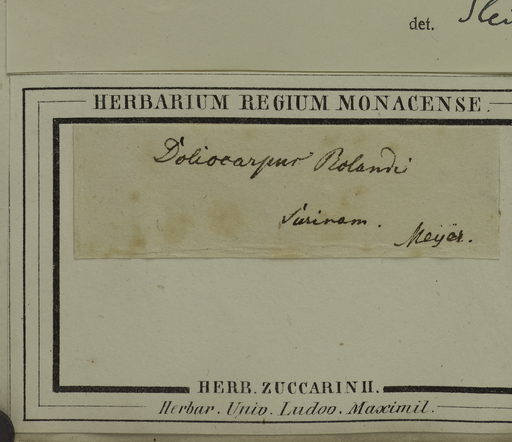 det.
HERBARIUM REGIUM MONACENSE.
Doliocarpus Rolandi
Surinam.
Meÿer.
HERB. ZUCCARINII.
Herbar. Univ. Ludov. Maximil.